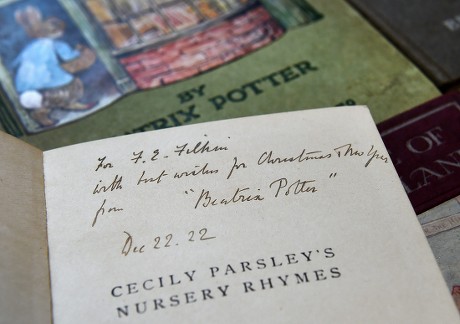 BY
BEATRIX POTTER
For F. E. Filkin
with best wishes for Christmas & New Year
from "Beatrix Potter"
Dec 22. 22
CECILY PARSLEY'S
NURSERY RHYMES
OF
LAN